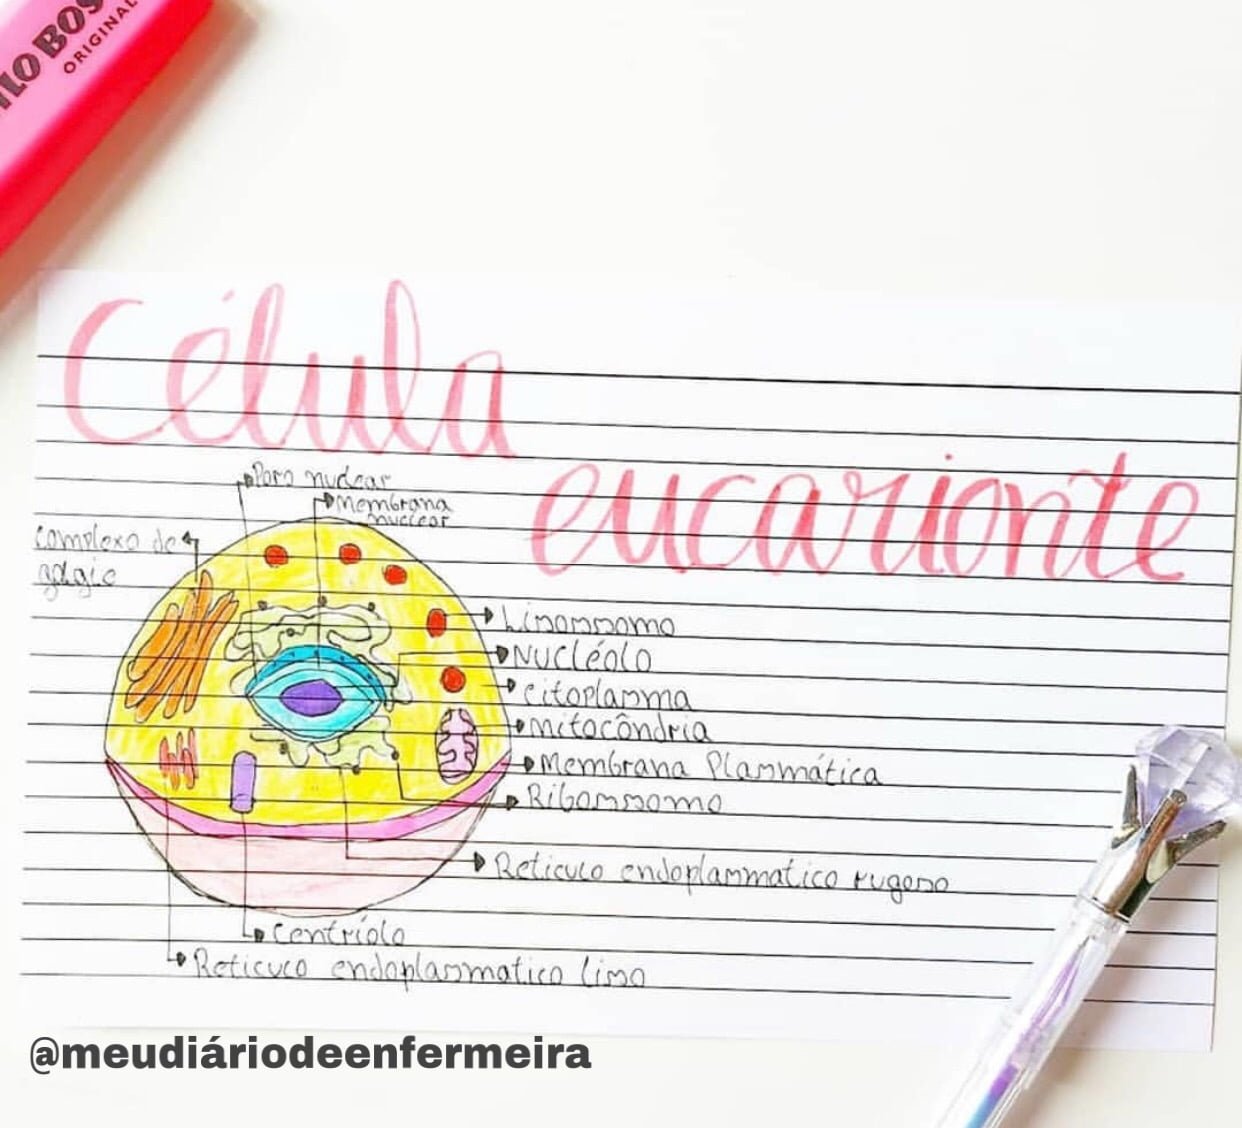 LO BOS
ORIGINAL
Célula
eucarionte
Poro nuclear
Membrana
nuclear
Complexo de
golgie
Lisossomo
Nucléolo
Citoplasma
Mitocôndria
Membrana Plasmática
Ribossomo
Reticulo endoplasmatico rugoso
Centríolo
Reticulo endoplasmatico liso
@meudiáriodeenfermeira